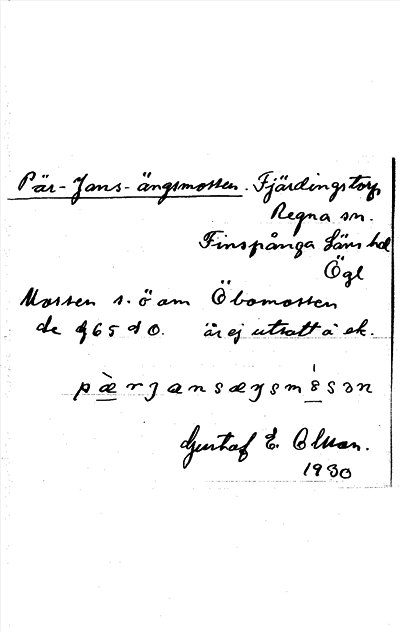 Pär-Jans-ängsmossen. Fjärdingstorp,
Regna sn.
Finspånga läns hd
Ögl
Mossen s.ö om Öbomossen
är ej utsatt å ek.
Gustaf E. Olsson.
1930